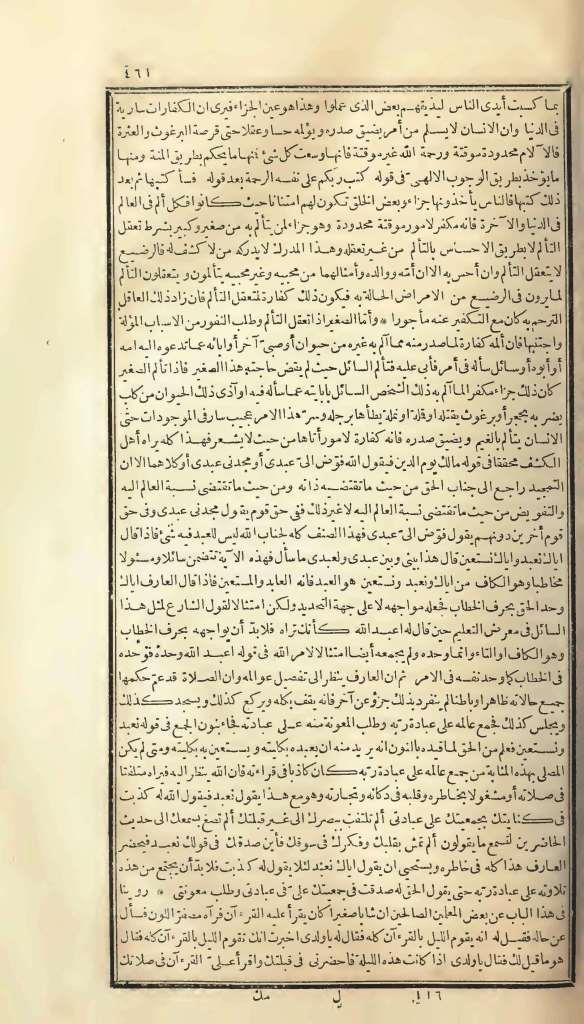 ٤٦١
بما كسبت أيدى الناس ليذيقهم بعض الذى عملوا وهذا هو عين الجزاء فترى ان الكفارات سارية
فى الدنيا وان الانسان لا يسلم من أمر يضيق صدره ويؤلمه حسا وعقلا حتى قرصة البرغوث والعثرة
فالآلام محدودة موقتة ورحمة الله غير موقتة فانها وسعت كل شئ فنها ما يحكم بطريق المنة ومنها
ما يؤخذ بطريق الوجوب الالهى فى قوله كتب ربكم على نفسه الرحمة بعد قوله فسأكتبها ثم بعد
ذلك كتبها فالناس يأخذونها جزاء وبعض الخلق تكون لهم امتنانا حيث كانوا فكل ألم فى العالم
فى الدنيا والآخرة فانه مكفر لامور موقتة محدودة وهو جزاء لمن يتألم به من صغير وكبير بشرط تعقل
التألم لا بطريق الاحساس بالتألم من غير تعقله وهذا المدرك لا يدركه من لا كشف له فالرضيع
لا يتعقل التألم وان أحس به الا ان أمّه ووالده وأمثالهما من محبيه وغير محبيه يتألمون ويتعقلون التألم
لما يرون فى الرضيع من الامراض الحالة به فيكون ذلك كفارة لمتعقل التألم فان زاد ذلك العاقل
الترحم به كان مع التكفير عنه مأجورا * وأما الصغير اذا تعقل التألم وطلب النفور من الاسباب المؤلمة
واجتنبها فان ألمه كفارة لما صدر منه مما آلم به غيره من حيوان أو صبىّ آخر أو ابائه عما تدعوه اليه امه
أو أبوه أو سائل سأله فى أمر فأبى عليه فتألم السائل حيث لم يقض حاجته هذا الصغير فاذا تألم الصغير
كان ذلك جزاء مكفرا لما آلم به ذلك الشخص السائل بابايته عما سأله فيه أو آذى ذلك الحيوان من كلب
يضربه بحجر أو برغوث يقتله أو قملة أو نملة يطأها برجله وسرّ هذا الامر عجيب سار فى الموجودات حتى
الانسان يتألم بالغيم ويضيق صدره فانه كفارة لامور أتاها من حيث لا يشعر فهذا كله يراه أهل
الكشف محققا فى قوله مالك يوم الدين فيقول الله فوّض الىّ عبدى أو مجدنى عبدى أو كلاهما الا ان
التمجيد راجع الى جناب الحق من حيث ما تقتضيه ذاته ومن حيث ما تقتضى نسبة العالم اليه
والتفويض من حيث ما تقتضى نسبة العالم اليه لا غير ذلك ففى حق قوم يقول مجدنى عبدى وفى حق
قوم آخرين دونهم يقول فوّض الىّ عبدى فهذا الصنف كله لجناب الله ليس للعبد فيه شئ فاذا قال
اياك نعبد واياك نستعين قال هذا بينى وبين عبدى ولعبدى ما سأل فهذه الآية تتضمن سائلا ومسئولا
مخاطبا وهو الكاف من اياك ونعبد ونستعين هو العبد فانه العابد والمستعين فاذا قال العارف اياك
وحد الحق بحرف الخطاب فجعله مواجهه لا على جهة التحديد ولكن امتثالا لقول الشارع لمثل هذا
السائل فى معرض التعليم حين قال له اعبد الله كأنك تراه فلا بدّ أن يواجهه بحرف الخطاب
وهو الكاف أو التاء وانما وحده ولم يجمعه أيضا امتثالا لامر الله فى قوله اعبد الله وحده فوحده
فى الخطاب كما وحد نفسه فى الامر ثم ان العارف ينظر الى تفصيل عوالمه وان الصلاة قد عمّ حكمها
جميع حالاته ظاهرا وباطنا لم ينفرد بذلك جزؤ عن آخر فانه يقف بكله ويركع كذلك ويسجد كذلك
ويجلس كذلك فجمع عالمه على عبادة ربه وطلب المعونة منه على عبادته فجاء بنون الجمع فى قوله نعبد
ونستعين فعلم من الحق لما قيده بالنون انه يريد منه ان يعبده بكليته ويستعين به بكليته ومتى لم يكن
المصلى بهذه المثابة من جمع عالمه على عبادة ربه كان كاذبا فى قراءته فان الله ينظر اليه فيراه ملتفتا
فى صلاته أو مشغولا بخاطره وقلبه فى دكانه وتجارته وهو مع هذا يقول نعبد فيقول الله له كذبت
فى كنايتك بجمعيتك على عبادتى ألم تلتفت ببصرك الى غير قبلتك ألم تصغ بسمعك الى حديث
الحاضرين لتسمع ما يقولون ألم تمش بقلبك وفكرك فى سوقك فأين صدقك فى قولك نعبد فيحضر
العارف هذا كله فى خاطره ويستحيى ان يقول اياك نعبد لئلا يقول له كذبت فلا بدّ أن يجتمع من هذه
تلاوته على عبادة ربه حتى يقول الحق له صدقت فى جمعيتك علىّ فى عبادتى وطلب معونتى * روينا
فى هذا الباب عن بعض المعلمين الصالحين ان شابا صغيرا كان يقرأ عليه القرءآن فرآه مصفرّ اللون فسأل
عن حاله فقيل له انه يقوم الليل بالقرءآن كله فقال له يا ولدى اخبرت انك تقوم الليل بالقرءآن كله فقال
هو ما قيل لك فقال يا ولدى اذا كانت هذه الليلة فاحضرنى فى قبلتك واقرأ علىّ القرءآن فى صلاتك
١١٦ ل مك